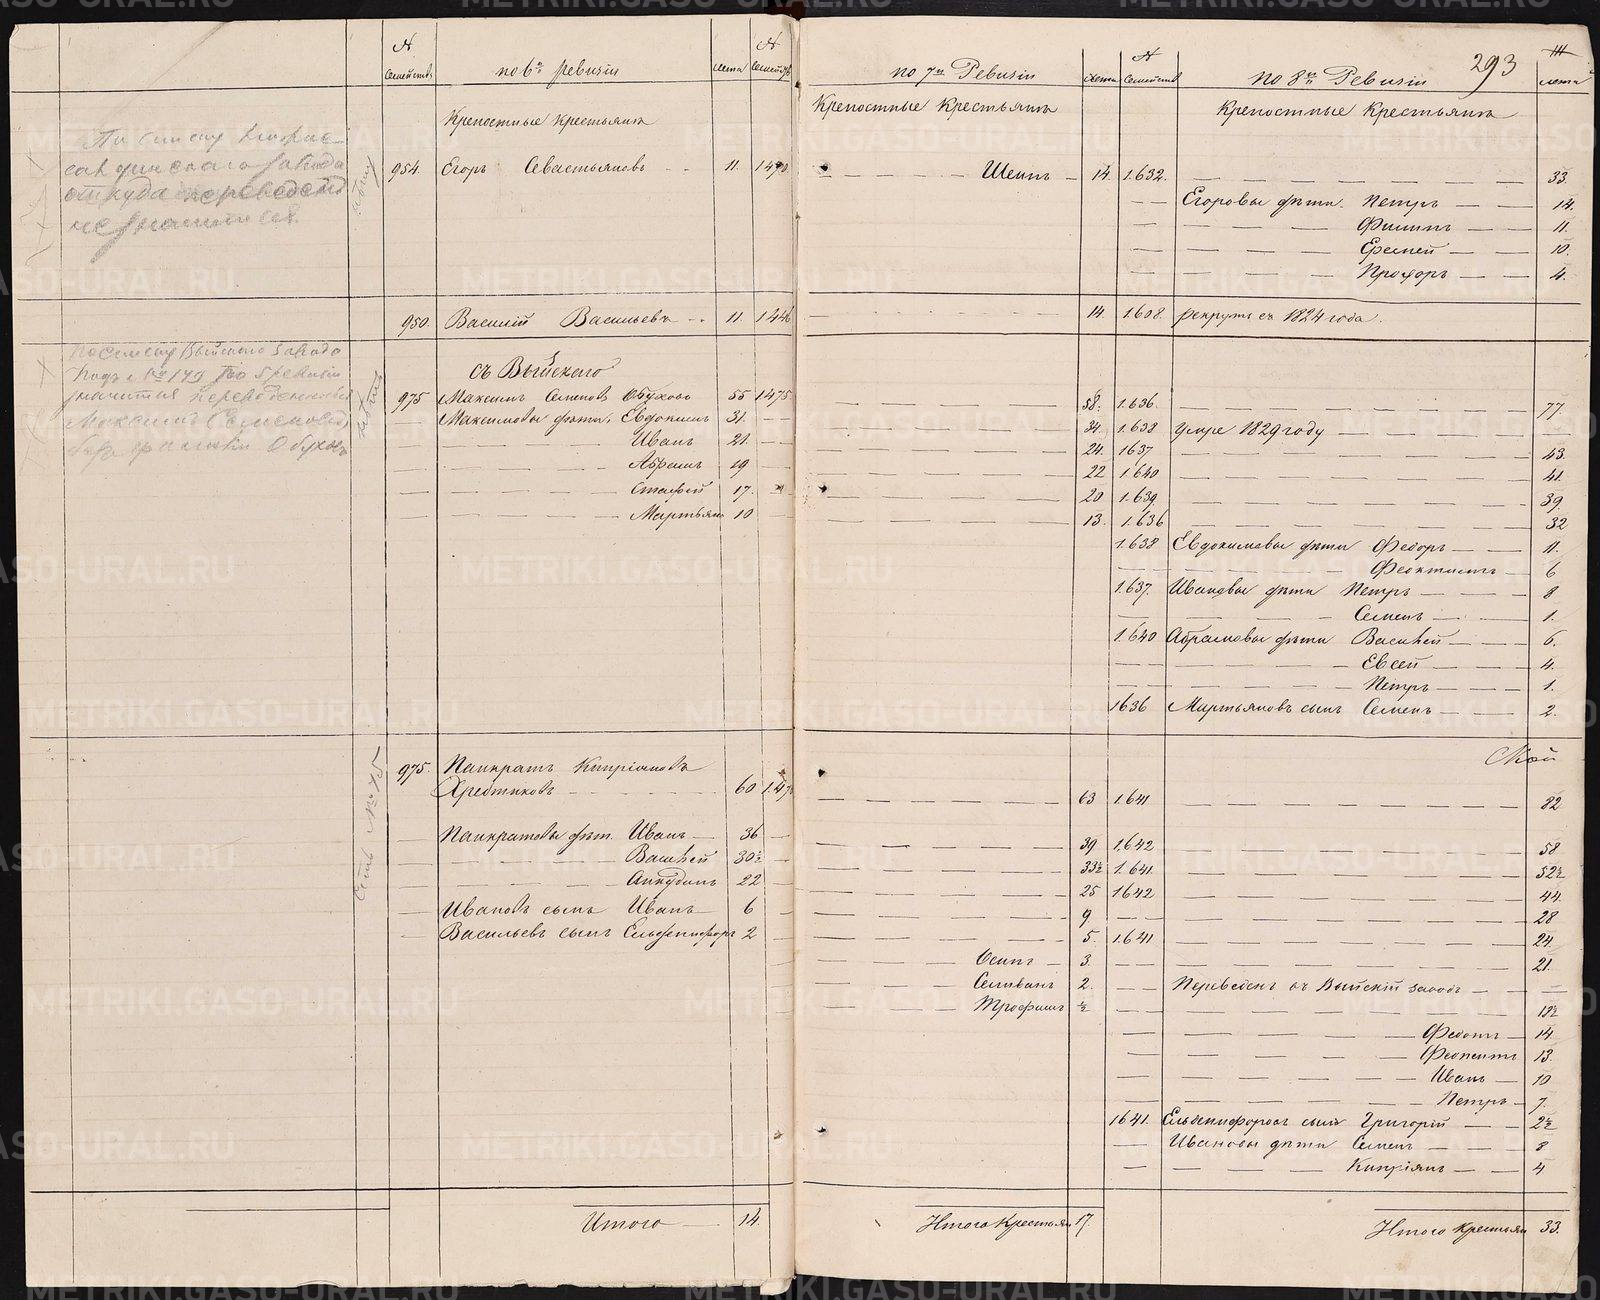 № семействъ
по 6й ревизiи
лета
№ семействъ
Крепостные Крестьяня
954. Егоръ Севастьяновъ 11. 1470
950. Василiй Васильевъ 11 1446
съ Выйского
975 Максимъ Семеновъ Обухово 55 1475
Максимовы дѣти, Евдокимъ 31.
Иванъ 21.
Абрамъ 19
17.
Мартьянъ 10
975. Панкратъ Кипрiановъ
Хребтиковъ 60 147
Панкратовы дѣт. Иванъ 36
Василей 30½
Анкудинъ 22
Ивановъ сынъ Иванъ 6
Васильевъ сынъ Ельфенифоръ 2
Итого 14.
По списку
откуда переведенъ
не значится
по списку Выйского завода
подъ № 149 по 5 ревизiи
значится
Максимъ Семеновъ
безъ фамилiи Обуховъ
есть № 75
по 7й Ревизiи
лета
№ семействъ
по 8й Ревизiи
293
лета
Крепостные Крестьяня
Крепостные Крестьяня
14. 1.632. 33.
Егоровы дѣти. Петръ 14.
Филипъ 11.
Еремей 10.
Прохоръ 4.
14. 1.608. рекрутъ съ 1824 года.
58. 1.636. 77.
34. 1.638 умре 1829 году
24. 1637 43.
22 1.640 41.
20 1.639. 39.
13. 1.636 32
1.638 Евдокимовы дѣти Федоръ 11.
Феоктистъ 6
1.637. Ивановы дѣти Петръ 8
Семенъ 1.
1.640 Абрамовы дѣти Василей 6.
Евсей 4.
Петръ 1.
1636 Мартьяновъ сынъ Семенъ 2.
63 1.641 82
39 1.642 58
33½ 1.641 52½
25 1642 44
9. 28
5. 1.641 24.
Осипъ 3. 21.
Селиванъ 2. Переведенъ въ Выйскiй заводъ
Трофимъ ½ 19½
Федотъ 14
Феопентъ 13.
Иванъ 10
Петръ 7.
1641. Ельфенифоровъ сынъ Григорiй 2½
Ивановы дѣти Семенъ 8
Кипрiянъ 4
Итого Крестьян 17.
Итого крестьян 33.